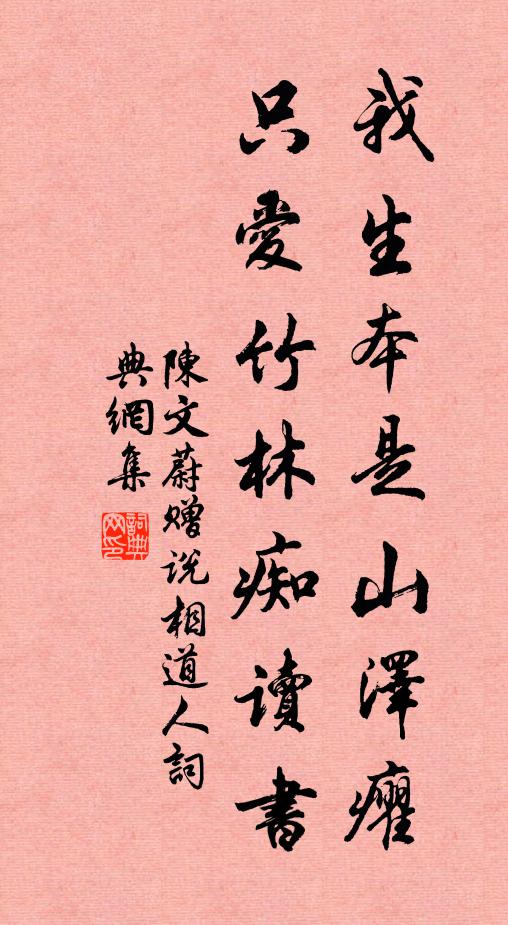 我生本是山澤癯
只愛竹林痴讀書
陳文蔚贈说相道人詞
典網集
詞典網印